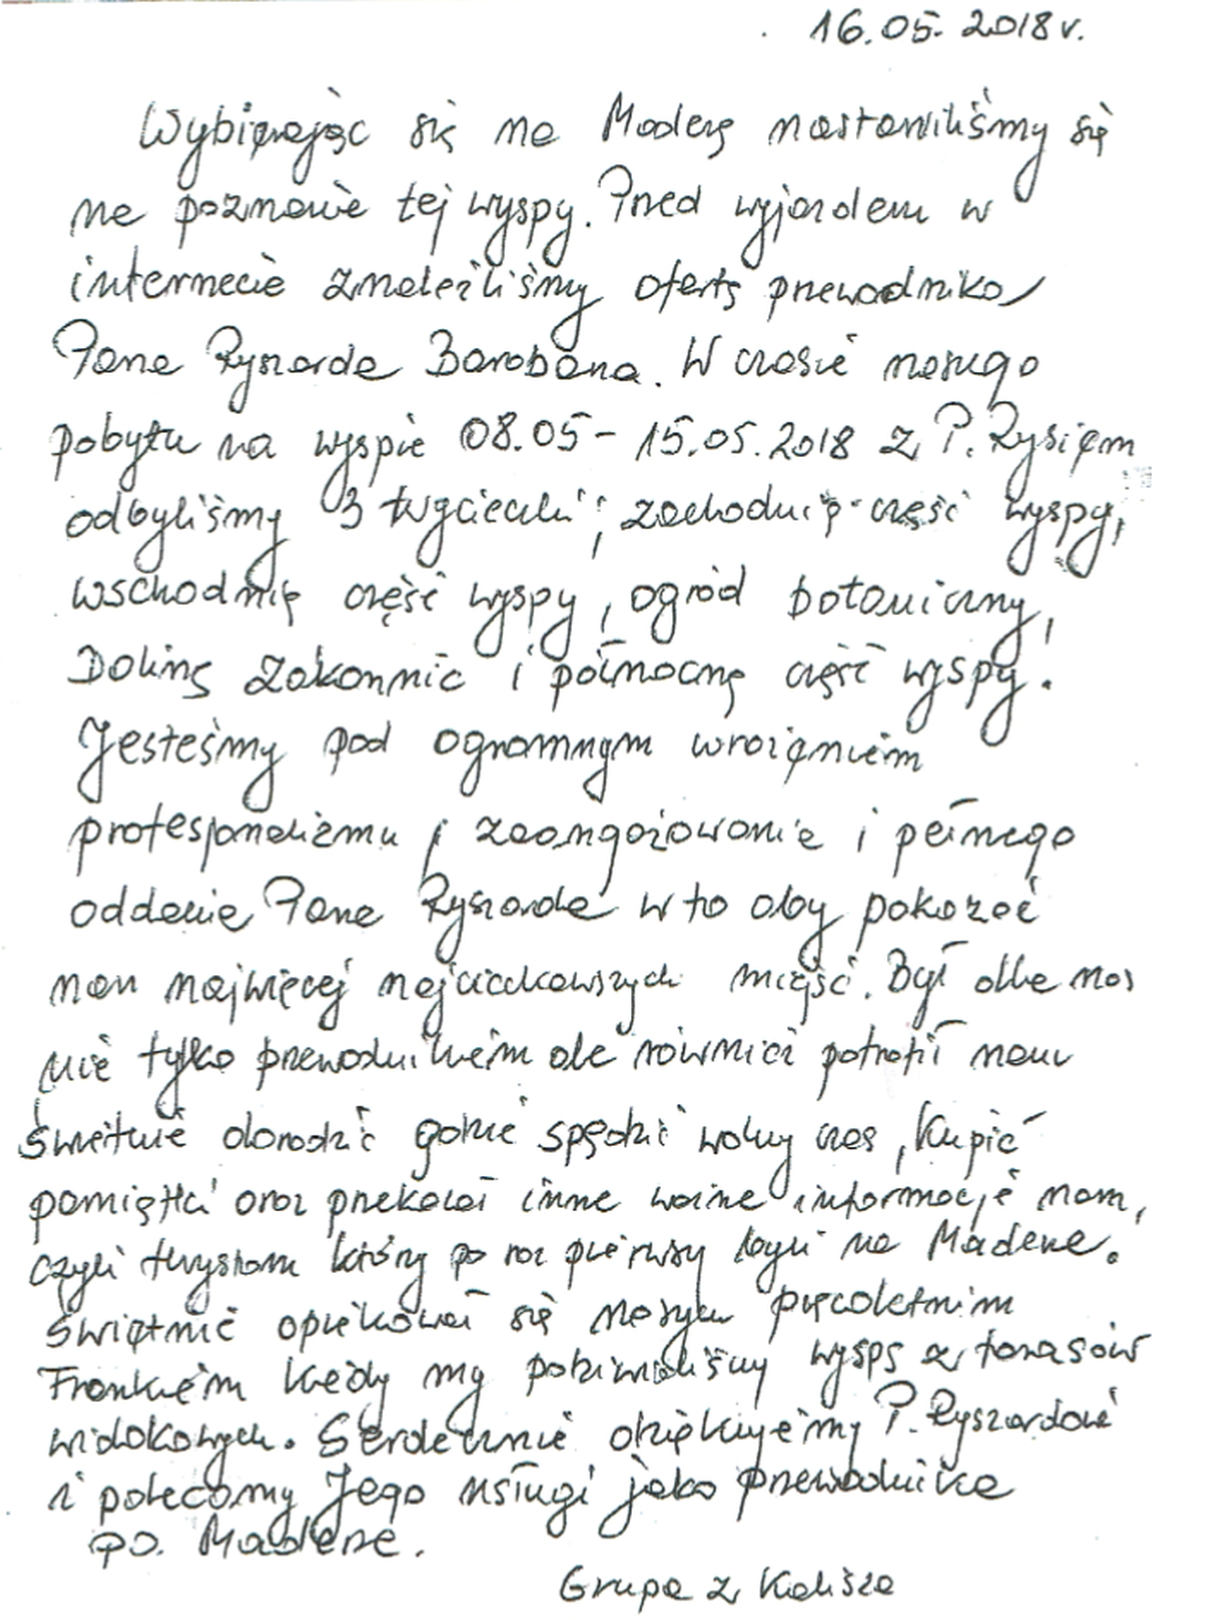 16.05.2018r.
Wybierając się na Maderę nastawiliśmy się
na poznanie tej wyspy. Przed wyjazdem w
internecie znaleźliśmy ofertę przewodnika
Pana Ryszarda Barabana. W czasie naszego
pobytu na wyspie 08.05 - 15.05.2018 z P. Rysiem
odbyliśmy 3 wycieczki; zachodnią część wyspy,
wschodnią część wyspy, ogród botaniczny,
Dolinę Zakonnic i północną część wyspy.
Jesteśmy pod ogromnym wrażeniem
profesjonalizmu, zaangażowania i pełnego
oddanie Pana Ryszarda w to aby pokazać
nam najwięcej najciekawszych miejsc. Był dla nas
nie tylko przewodnikiem ale również potrafił nam
świetnie doradzić gdzie spędzić wolny czas, kupić
pamiątki oraz przekazał inne ważne informacje nam,
czyli turystom którzy po raz pierwszy byli na Maderze.
Świetnie opiekował się naszym pięcioletnim
Frankiem kiedy my podziwialiśmy wyspę z tarasów
widokowych. Serdecznie dziękujemy P. Ryszardowi
i polecamy Jego usługi jako przewodnika
po. Maderze.
Grupa z Kalisza